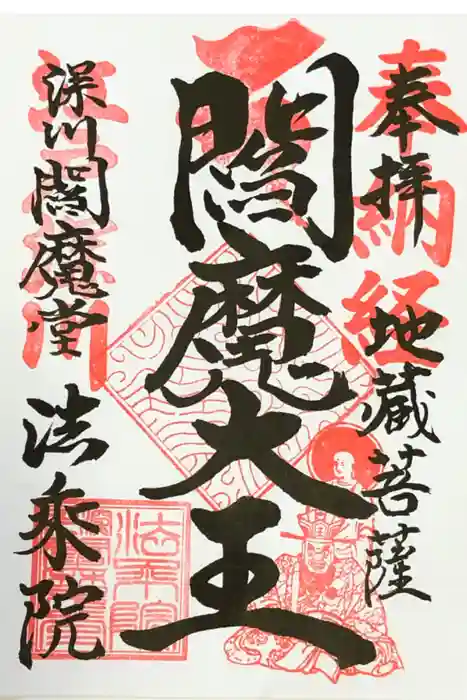 奉拝
奉納経
地蔵菩薩
閻魔大王
深川閻魔堂
法乗院
法乗院